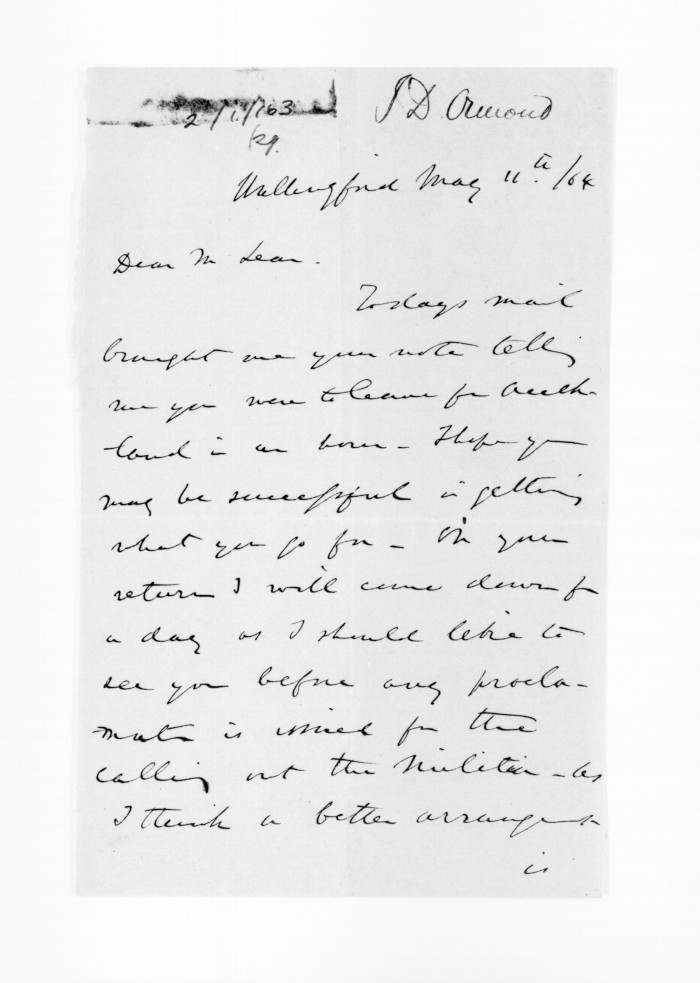 J D. Ormond
Wallingford May 11th /64
Dear McLean.
Todays mail
brought me your note telling
me you were to leave for Auck-
land in an hour - I hope you
may be successful in getting
what you go for - On your
return I will come down for
a day as I should like to
see you before any procla-
mation is issued for the
calling out the Militia - as
I think a better arrangement
is